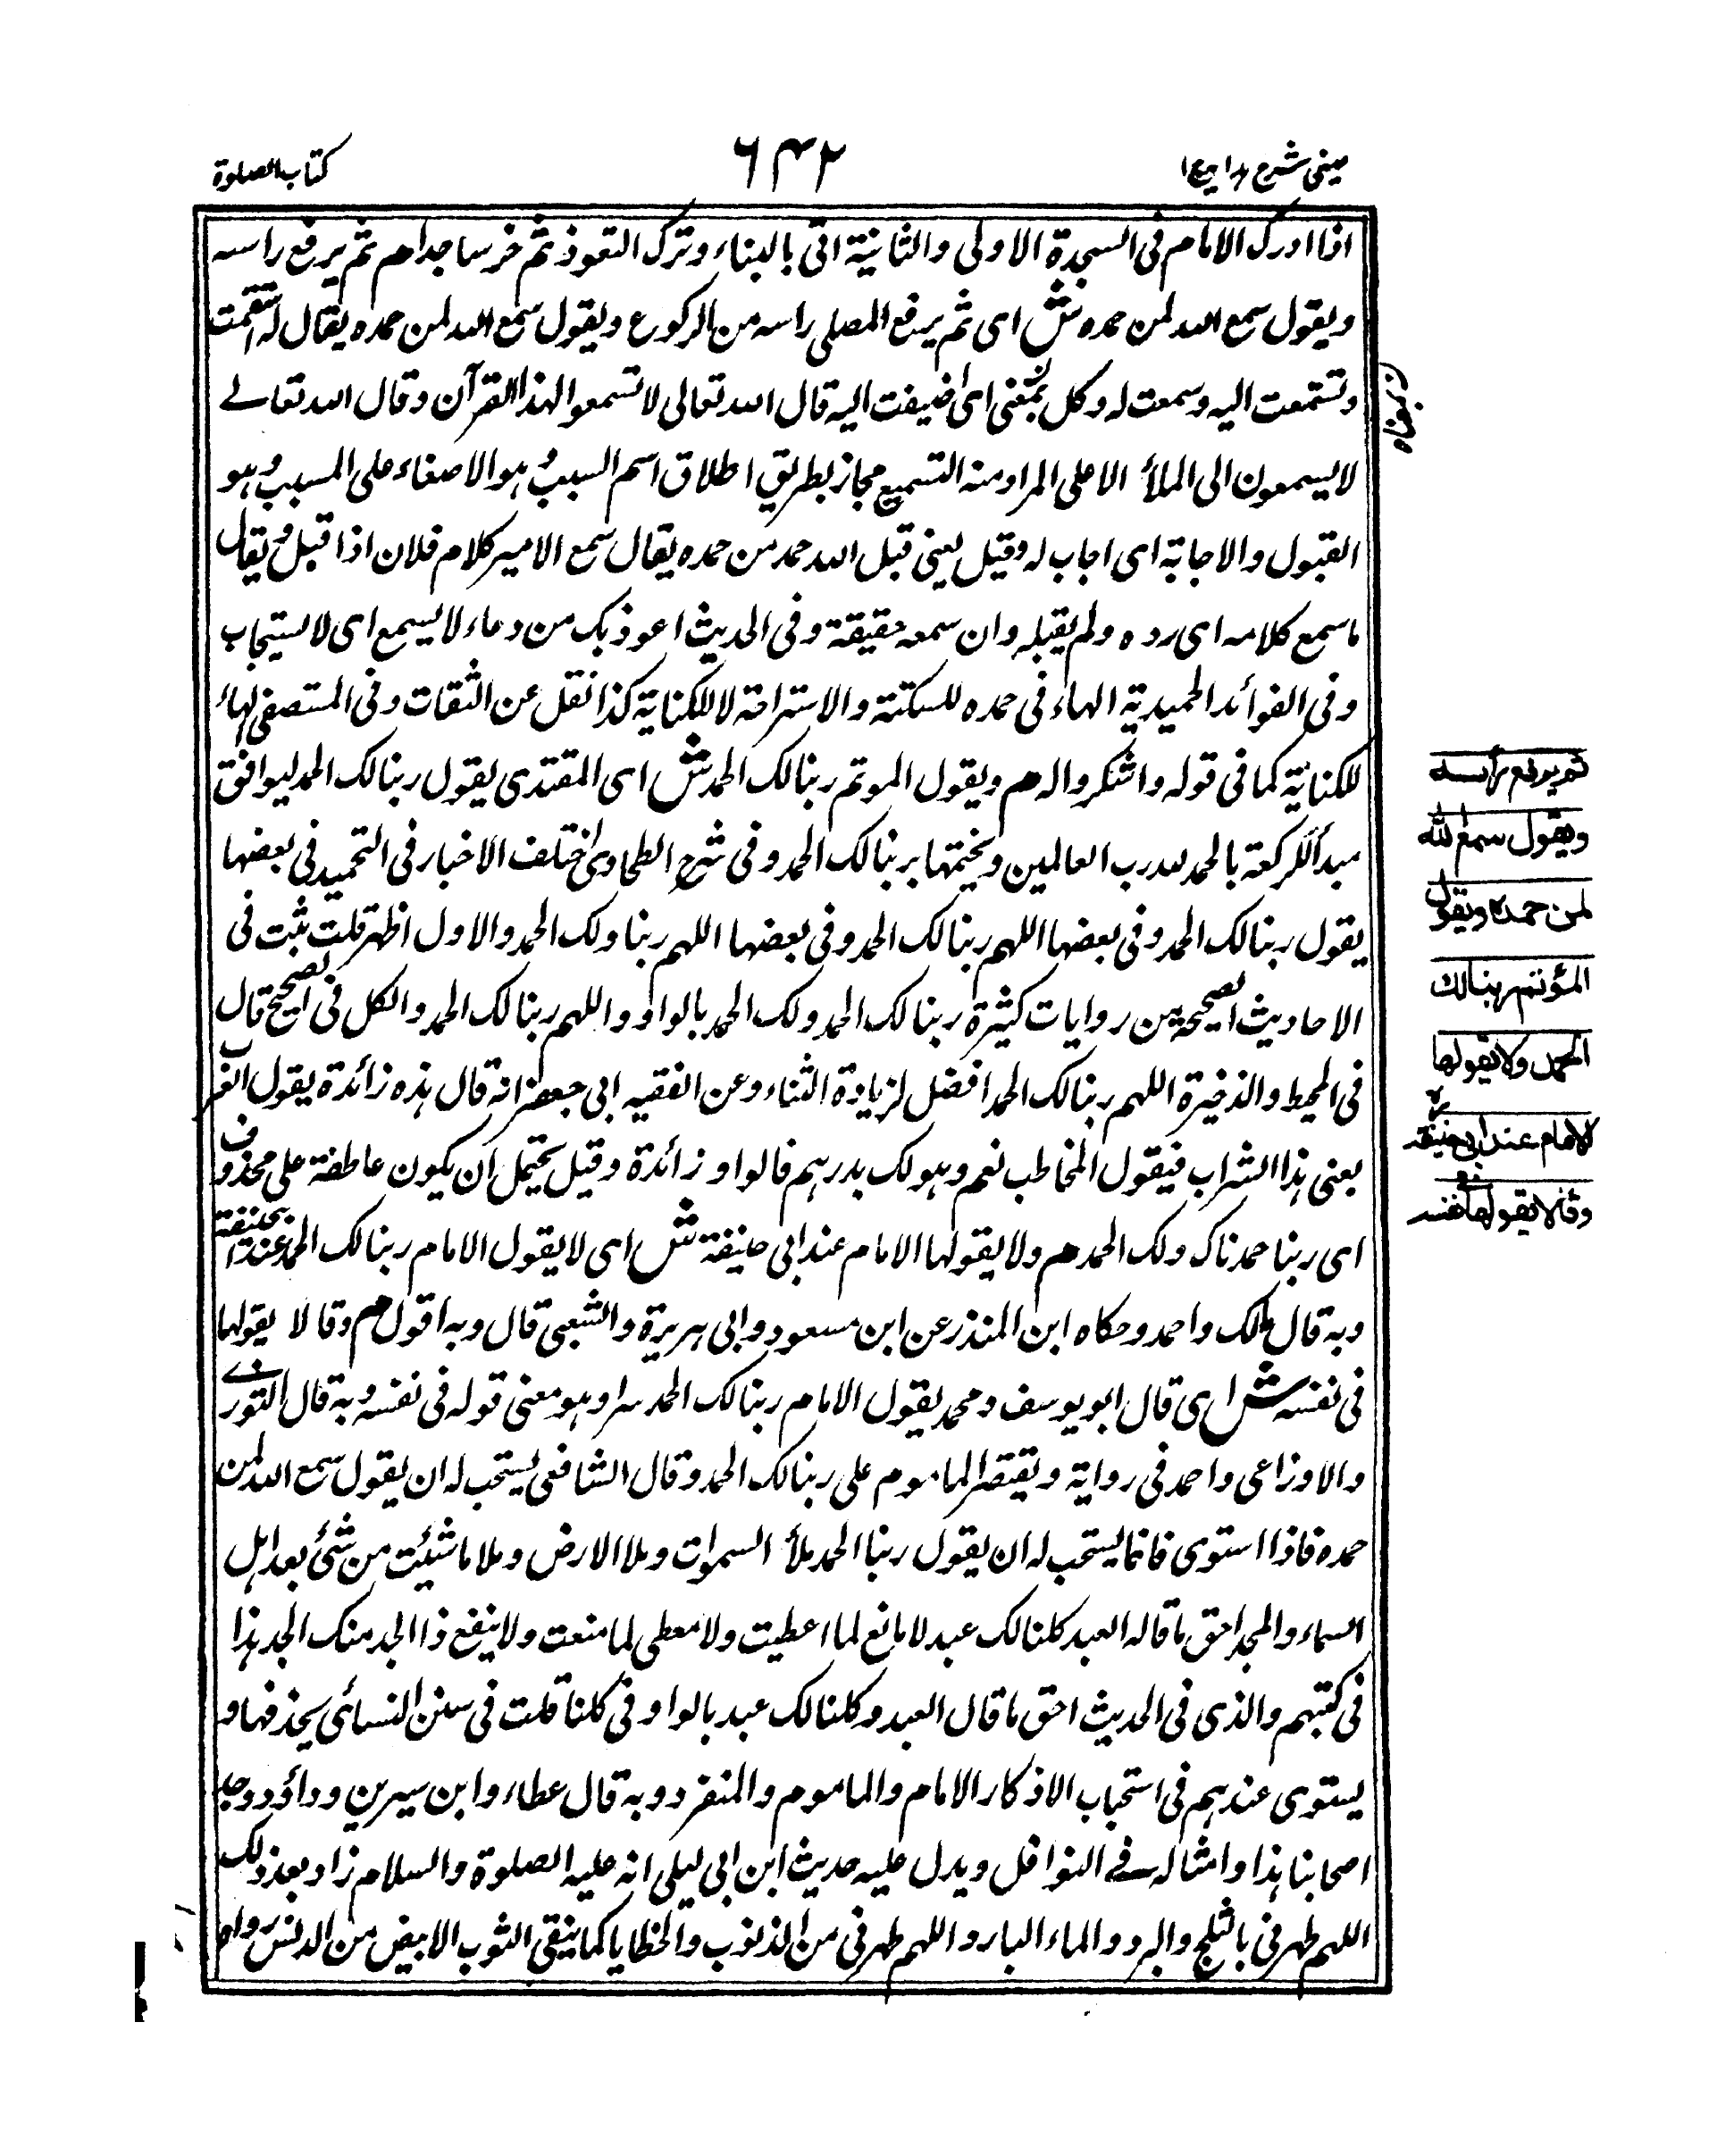 عینی شرح ہدایہ ج ا
۶۴۲
کتاب الصلوة
اذا ادرک الامام فی السجدة الاولی والثانیة اتی بالثناء وترک التعوذ ثم خر ساجدا هم ثم یرفع راسه
ویقول سمع الله لمن حمده ش ای ثم یرفع المصلی راسه من الرکوع ویقول سمع الله لمن حمده یقال له
وتستمعت الیه وسمعت له وکل بمعنی ای اضیفت الیه قال الله تعالی لا تسمعوا لهذا القرآن وقال الله تعالے
لا یسمعون الی الملأ الاعلی المراد منه التسمیع مجاز بطریق اطلاق اسم السبب وہو الاصغاء علی المسبب وہو
القبول والاجابة ای اجاب له وقیل یعنی قبل الله حمد من حمده یقال سمع الامیر کلام فلان اذا قبل ویقال
ما سمع کلامه ای رده ولم یقبله وان سمعه حقیقة وفی الحدیث اعوذ بک من دعاء لا یسمع ای لا یستجاب
وفی الفوائد الحمیدیة الهاء فی حمده للسکتة والاستراحة لا للکنایة کذا نقل عن الثقات وفی المستصفی الهاء
للکنایة کما فی قوله واشکروا له هم ویقول الموتم ربنا لک الحمد ش ای المقتدی یقول ربنا لک الحمد لیوافق
مبدأ الرکعة بالحمد لله رب العالمین ویختمها بربنا لک الحمد وفی شرح الطحاوی اختلف الاخبار فی التحمید فی بعضها
یقول ربنا لک الحمد وفی بعضها اللهم ربنا لک الحمد وفی بعضها اللهم ربنا ولک الحمد والاول اظهر قلت ثبت فی
الاحادیث الصحیحة من روایات کثیرة ربنا لک الحمد ولک الحمد بالواو واللهم ربنا لک الحمد والکل فی الصحیح قال
فی المحیط والذخیرة اللهم ربنا لک الحمد افضل لزیادة الثناء وعن الفقیه ابی جعفر انه قال ہذه زائدة یقول العرب
بعنی ہذا الشراب فیقول المخاطب نعم وہو لک بدرہم فالواو زائدة وقیل یحتمل ان یکون عاطفة علی محذوف
ای ربنا حمدناک ولک الحمد هم ولا یقولها الامام عند ابی حنیفة ش ای لا یقول الامام ربنا لک الحمد عند ابی حنیفة
وبه قال مالک واحمد وحکاه ابن المنذر عن ابن مسعود وابی ہریرة والشعبی قال وبه اقول هم وقالا یقولها
فی نفسه ش ای قال ابو یوسف ومحمد یقول الامام ربنا لک الحمد سرا وہو معنی قوله فی نفسه وبه قال الثوری
والاوزاعی واحمد فی روایة ویقتصر الماموم علی ربنا لک الحمد وقال الشافعی یستحب له ان یقول سمع الله لمن
حمده فاذا استوی قائما یستحب له ان یقول ربنا الحمد ملأ السموات وملا الارض وملا ما شیئت من شئ بعد اہل
السماء والمجد احق ما قاله العبد کلنا لک عبد لا مانع لما اعطیت ولا معطی لما منعت ولا ینفع ذا الجد منک الجد ہذا
فی کتبهم والذی فی الحدیث احق ما قال العبد وکلنا لک عبد بالواو فی کلنا قلت فی سنن النسائی یحذفها و
یستوی عندہم فی استحباب الاذکار الامام والماموم والمنفرد وبه قال عطاء وابن سیرین وداؤد وجل
اصحابنا ہذا وامثاله فے النوافل ویدل علیه حدیث ابن ابی لیلی انه علیه الصلوة والسلام زاد بعد ذلک
اللهم طهرنی بالثلج والبرد والماء البارد اللهم طهرنی من الذنوب والخطایا کما ینقی الثوب الابیض من الدنس رواه
ثم یرفع رأسه
ویقول سمع الله
لمن حمده ویقول
المؤتم ربنا لک
الحمد ولا یقولها
الامام عند ابی حنیفة
وقالا یقولها فی نفسه